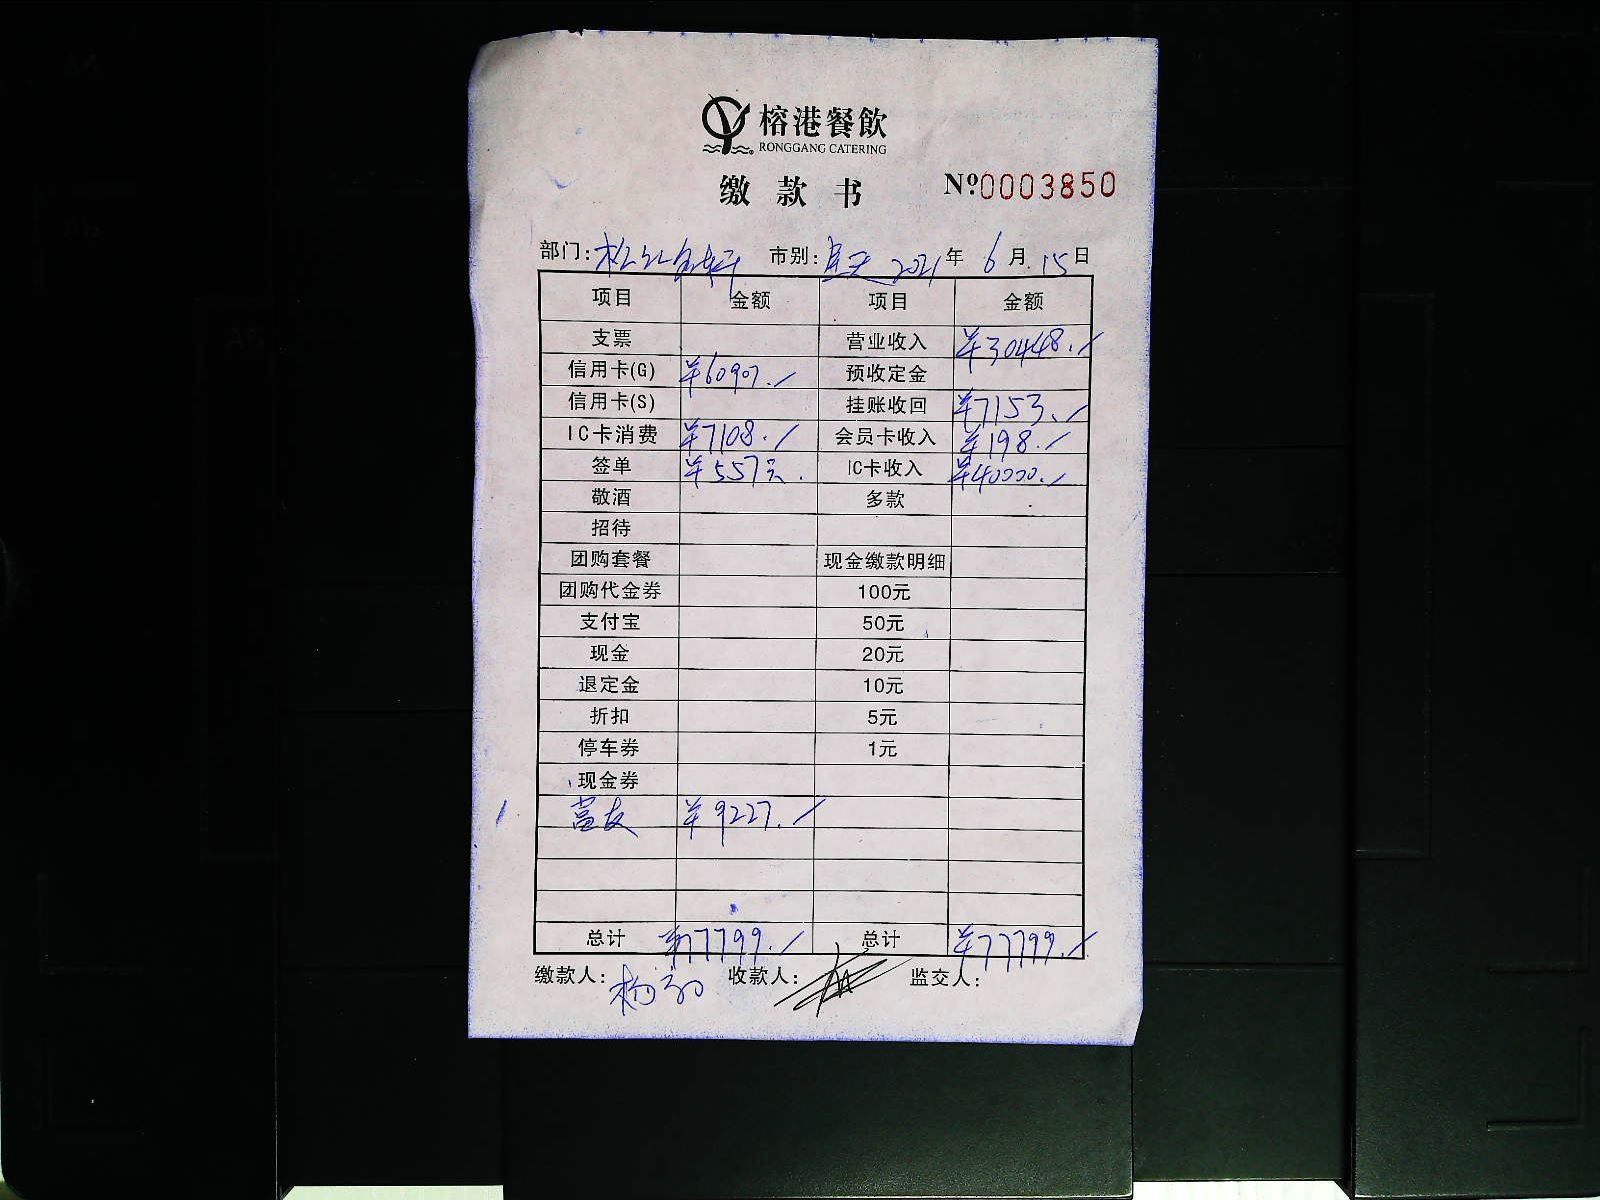 榕港餐飲
RONGGANG CATERING
缴款书 №0003850
部门: 市别: 2021年6月15日
项目 金额 项目 金额
支票 营业收入 ¥30448.
信用卡(G) ¥60907. 预收定金
信用卡(S) 挂账收回 ¥7153.
IC卡消费 ¥7108. 会员卡收入 ¥198.
签单 ¥557元. IC卡收入 ¥40000.
敬酒 多款
招待
团购套餐 现金缴款明细
团购代金券 100元
支付宝 50元
现金 20元
退定金 10元
折扣 5元
停车券 1元
现金券
¥9227.
总计 ¥77799. 总计 ¥77799.
缴款人: 收款人: 监交人: